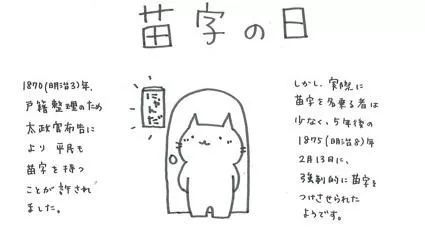 苗字の日
1870(明治3)年、
戸籍整理のため
太政官布告に
より平民も
苗字を持つ
ことが許され
ました。
にゃんだ
しかし、実際に
苗字を名乗る者は
少なく、5年後の
1875(明治8)年
2月13日に、
強制的に苗字を
つけさせられた
ようです。